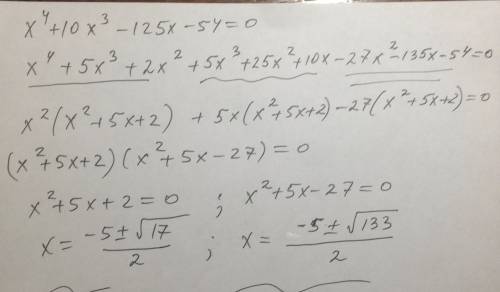 x⁴+10x³-125x-54=0
x⁴+5x³+2x²+5x³+25x²+10x-27x²-135x-54=0
x²(x²+5x+2) + 5x(x²+5x+2)-27(x²+5x+2)=0
(x²+5x+2)(x²+5x-27)=0
x²+5x+2=0 ; x²+5x-27=0
x= (-5±√17)/2 ; x= (-5±√133)/2